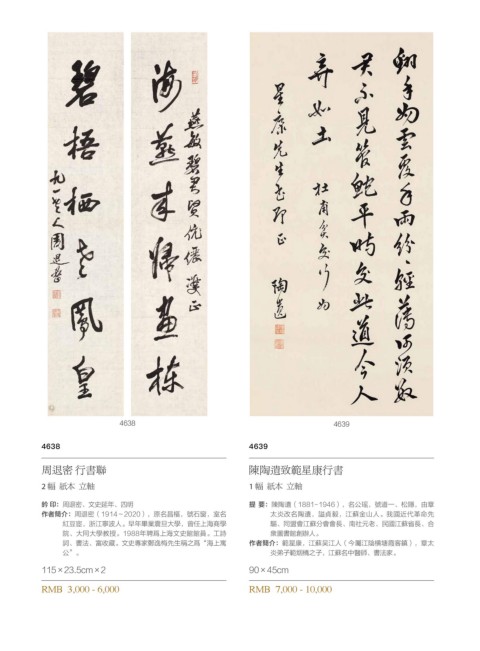 海燕來歸畫棟
碧梧栖老鳳皇
九一老人周退密
翻手為雲覆手雨紛紛輕薄何須數
君不見管鮑平時交此道今人
棄如土 杜甫貧交行
星康先生 正 陶遺
4638
4639
4638
周退密 行書聯
2 幅 紙本 立軸
鈐 印：周退密、文史延年、四明
作者簡介：周退密（1914－2020），原名昌樞，號石窗，室名
紅豆宧，浙江寧波人。早年畢業震旦大學，曾任上海商學
院、大同大學教授。1988年聘爲上海文史館館員。工詩
詞、書法，富收藏。文史專家鄭逸梅先生稱之爲“海上寓
公”。
115×23.5cm×2
RMB 3,000 - 6,000
4639
陳陶遺致範星康行書
1 幅 紙本 立軸
提 要：陳陶遺（1881-1946），名公瑶，號道一、松陵，由章
太炎改名陶遺，謚貞毅，江蘇金山人。我國近代革命先
驅、同盟會江蘇分會會長、南社元老、民國江蘇省長、合
衆圖書館創辦人。
作者簡介：範星康，江蘇吴江人（今屬江陰横塘霞客鎮），章太
炎弟子範烟橋之子，江蘇名中醫師、書法家。
90×45cm
RMB 7,000 - 10,000